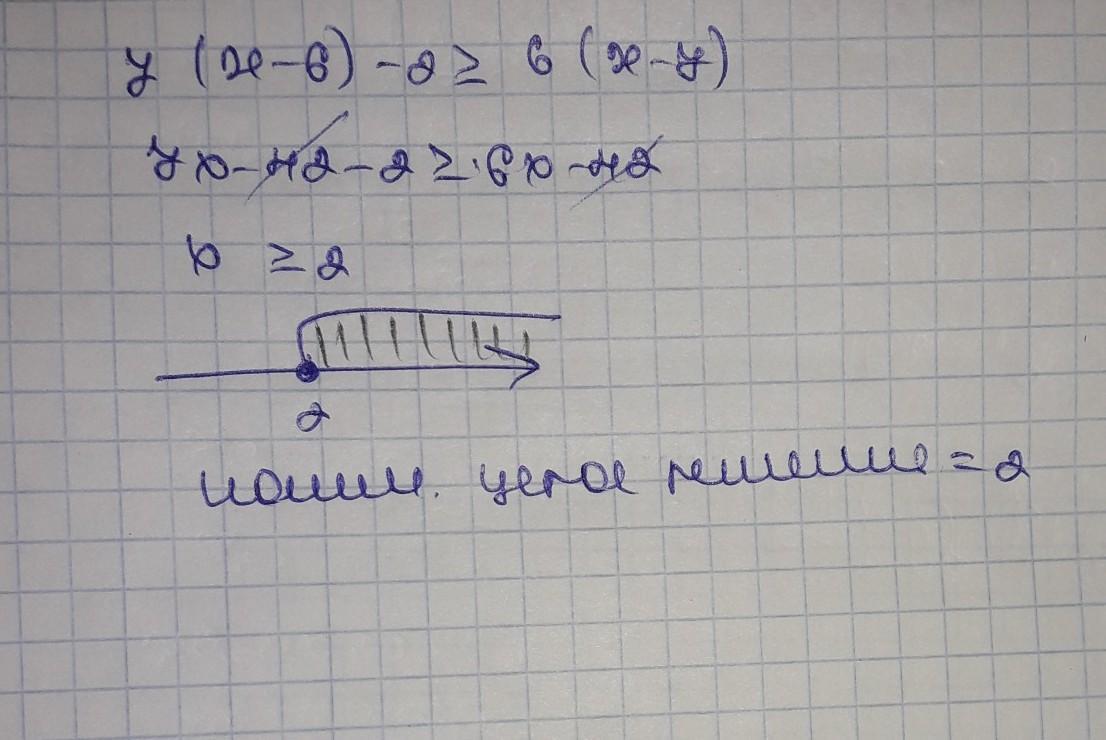 7 (x-6) -2 ≥ 6 (x-7)
7x-42-2 ≥ 6x-42
x ≥ 2
2
наим. целое решение = 2